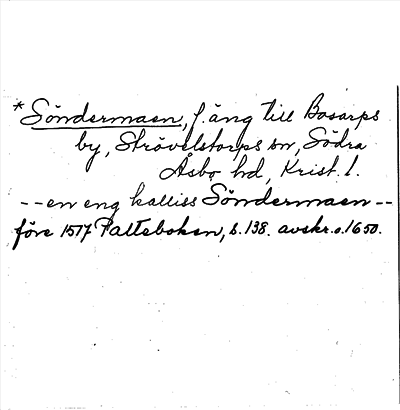 * Söndermaen, f. äng till Bosarps
by, Strövelstorps sn, Södra
Åsbo hd, Krist. l.
-- en eng kalliss Söndermaen --
före 1517 Palteboken, s. 138. avskr. o. 1650.